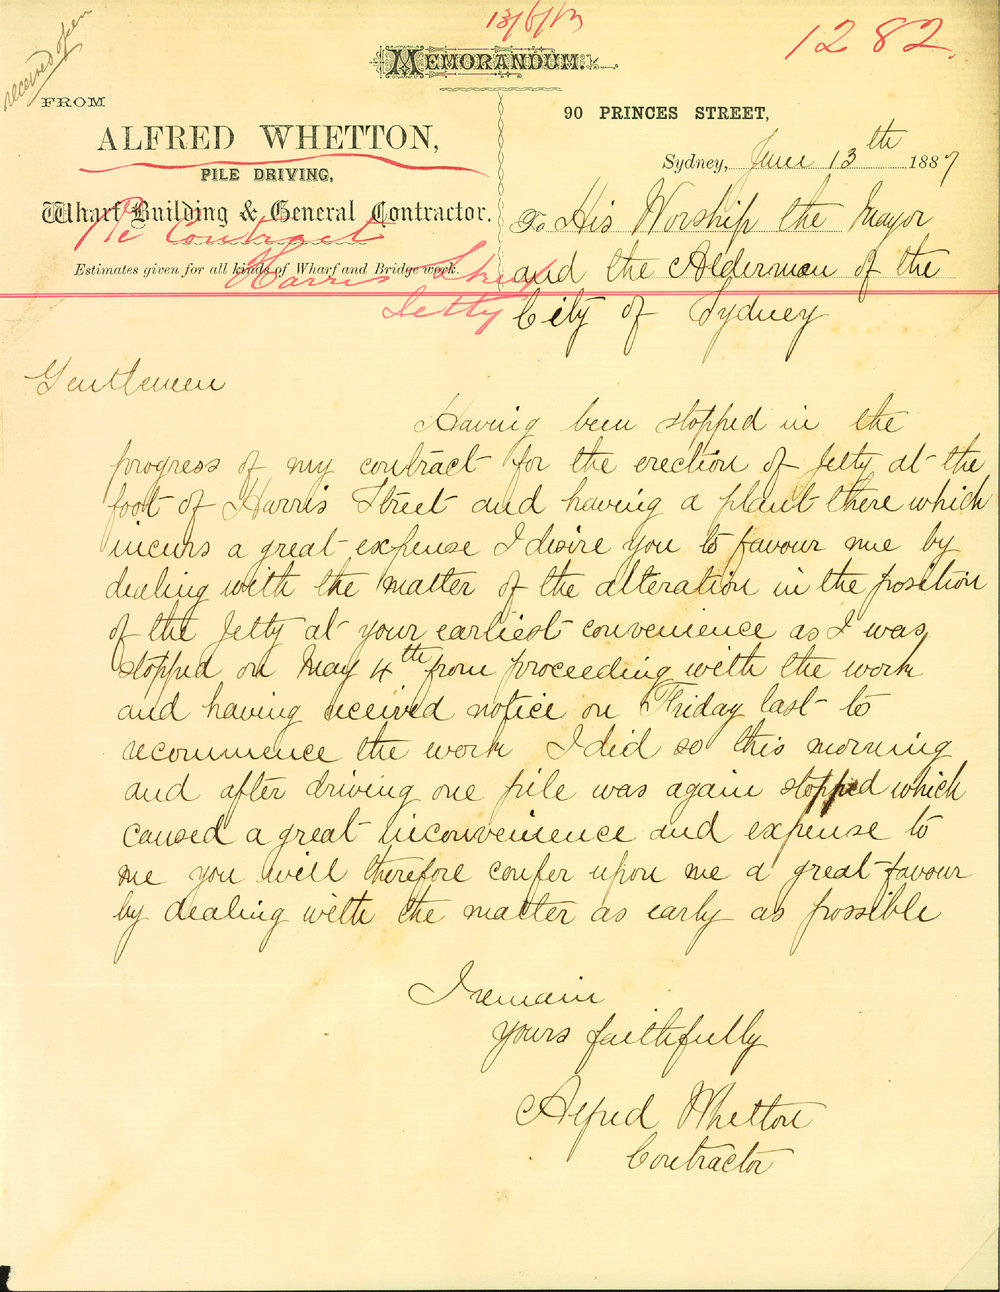 received open
13/6/87
1282
MEMORANDUM.
FROM
ALFRED WHETTON,
PILE DRIVING,
Wharf Building & General Contractor.
Estimates given for all kinds of Wharf and Bridge work.
Re Contract
Harris Street
Jetty
90 PRINCES STREET,
Sydney, June 13th 1887
To His Worship the Mayor
and the Aldermen of the
City of Sydney
Gentlemen
Having been stopped in the
progress of my contract for the erection of Jetty at the
foot of Harris Street and having a plant there which
incurs a great expense I disire you to favour me by
dealing with the matter of the alteration in the position
of the Jetty at your earliest convenience as I was
stopped on May 4th from proceeding with the work
and having received notice on Friday last to
recommence the work I did so this morning
and after driving one pile was again stopped which
caused a great inconvenience and expense to
me you will therefore confer upon me a great favour
by dealing with the matter as early as possible
I remain
yours faithfully
Alfred Whetton
Contractor